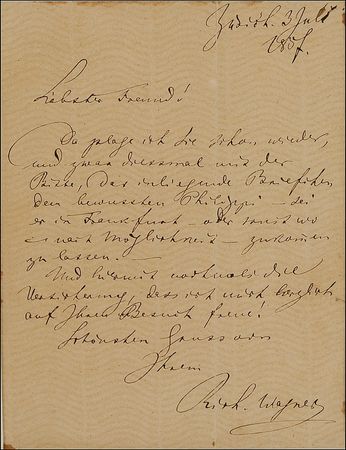 Zürich. 3 Juli
1857.
Liebster Freund!
Da plage ich Sie schon wieder,
und zwar diessmal mit der
Bitte, das inliegende Briefchen
dem bewussten Philippi – sei
er in Frankfurt – oder sonst wo
– nach Möglichkeit – zukommen
zu lassen. –
Und hiermit nochmals die
Versicherung, dass ich mich herzlich
auf Ihren Besuch freue!
Schönsten Gruss von
Ihrem
Rich. Wagner